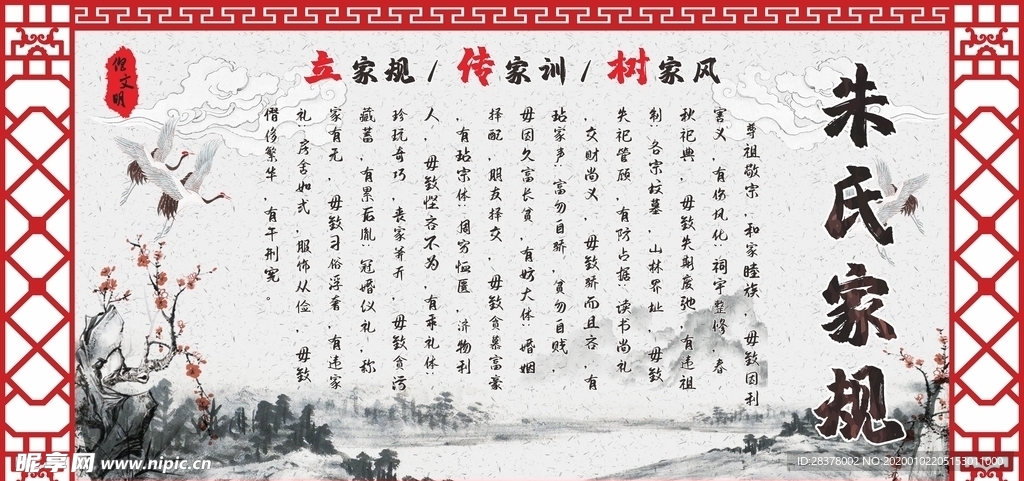 朱氏家规
立家规/传家训/树家风
尊祖敬宗，和家睦族，毋致因利
害义，有伤风化。祠宇整修，春
秋祀典，毋致失期废弛，有违祖
制。各宗坟墓，山林界址，毋致
失祀管顾，有防占据。读书尚礼
，交财尚义，毋致骄而且吝，有
玷家声。富勿自骄，贫勿自贱，
毋因久富长贫，有妨大体。婚姻
择配，朋友择交，毋致贪慕富豪
，有玷宗体。周穷恤匮，济物利
人，毋致悭吝不为，有乖礼体。
珍玩奇巧，丧家斧斤，毋致贪污
藏蓄，有累后胤。冠婚仪礼，称
家有无，毋致习俗浮奢，有违家
礼。房舍如式，服饰从俭，毋致
僭侈繁华，有干刑宪。
昵享网 www.nipic.cn
ID:28378002 NO:20200102205153011000